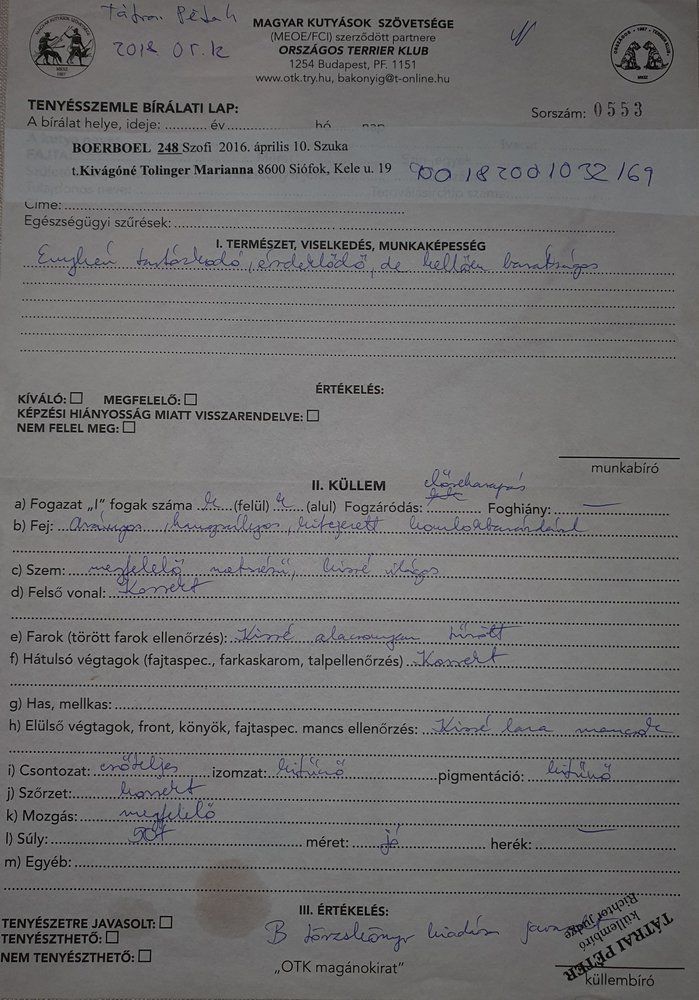 Tátrai Péter
MAGYAR KUTYÁSOK SZÖVETSÉGE
(MEOE/FCI) szerződött partnere
ORSZÁGOS TERRIER KLUB
1254 Budapest, PF. 1151
www.otk.try.hu, bakonyig@t-online.hu
TENYÉSSZEMLE BÍRÁLATI LAP:
Sorszám: 0553
A bírálat helye, ideje: ........... év ........................ hó ........ nap
BOERBOEL 248 Szofi 2016. április 10. Szuka
t.Kivágóné Tolinger Marianna 8600 Siófok, Kele u. 19
Címe:
Egészségügyi szűrések:
I. TERMÉSZET, VISELKEDÉS, MUNKAKÉPESSÉG
Enyhén tartózkodó, érdeklődő, de kellően barátságos
ÉRTÉKELÉS:
KÍVÁLÓ: ☐ MEGFELELŐ: ☐
KÉPZÉSI HIÁNYOSSÁG MIATT VISSZARENDELVE: ☐
NEM FELEL MEG: ☐
munkabíró
II. KÜLLEM
előreharapás
a) Fogazat „I" fogak száma (felül) (alul) Fogzáródás: Foghiány: —
b) Fej: Arányos, hangsúlyos, kifejezett homlokbarázdával
c) Szem: megfelelő metszésű, kissé világos
d) Felső vonal: Korrekt
e) Farok (törött farok ellenőrzés): Kissé alacsonyan tűzött
f) Hátulsó végtagok (fajtaspec., farkaskarom, talpellenőrzés) Korrekt
g) Has, mellkas:
h) Elülső végtagok, front, könyök, fajtaspec. mancs ellenőrzés: Kissé laza mancsok
i) Csontozat: erőteljes izomzat: kitűnő pigmentáció: kitűnő
j) Szőrzet: korrekt
k) Mozgás: megfelelő
l) Súly: méret: jó herék: —
m) Egyéb:
TENYÉSZETRE JAVASOLT: ☐
III. ÉRTÉKELÉS:
TENYÉSZTHETŐ: ☐
B törzskönyv kiadásra
NEM TENYÉSZTHETŐ: ☐
„OTK magánokirat"
TÁTRAI PÉTER
küllembíró
Richter Judge
küllembíró